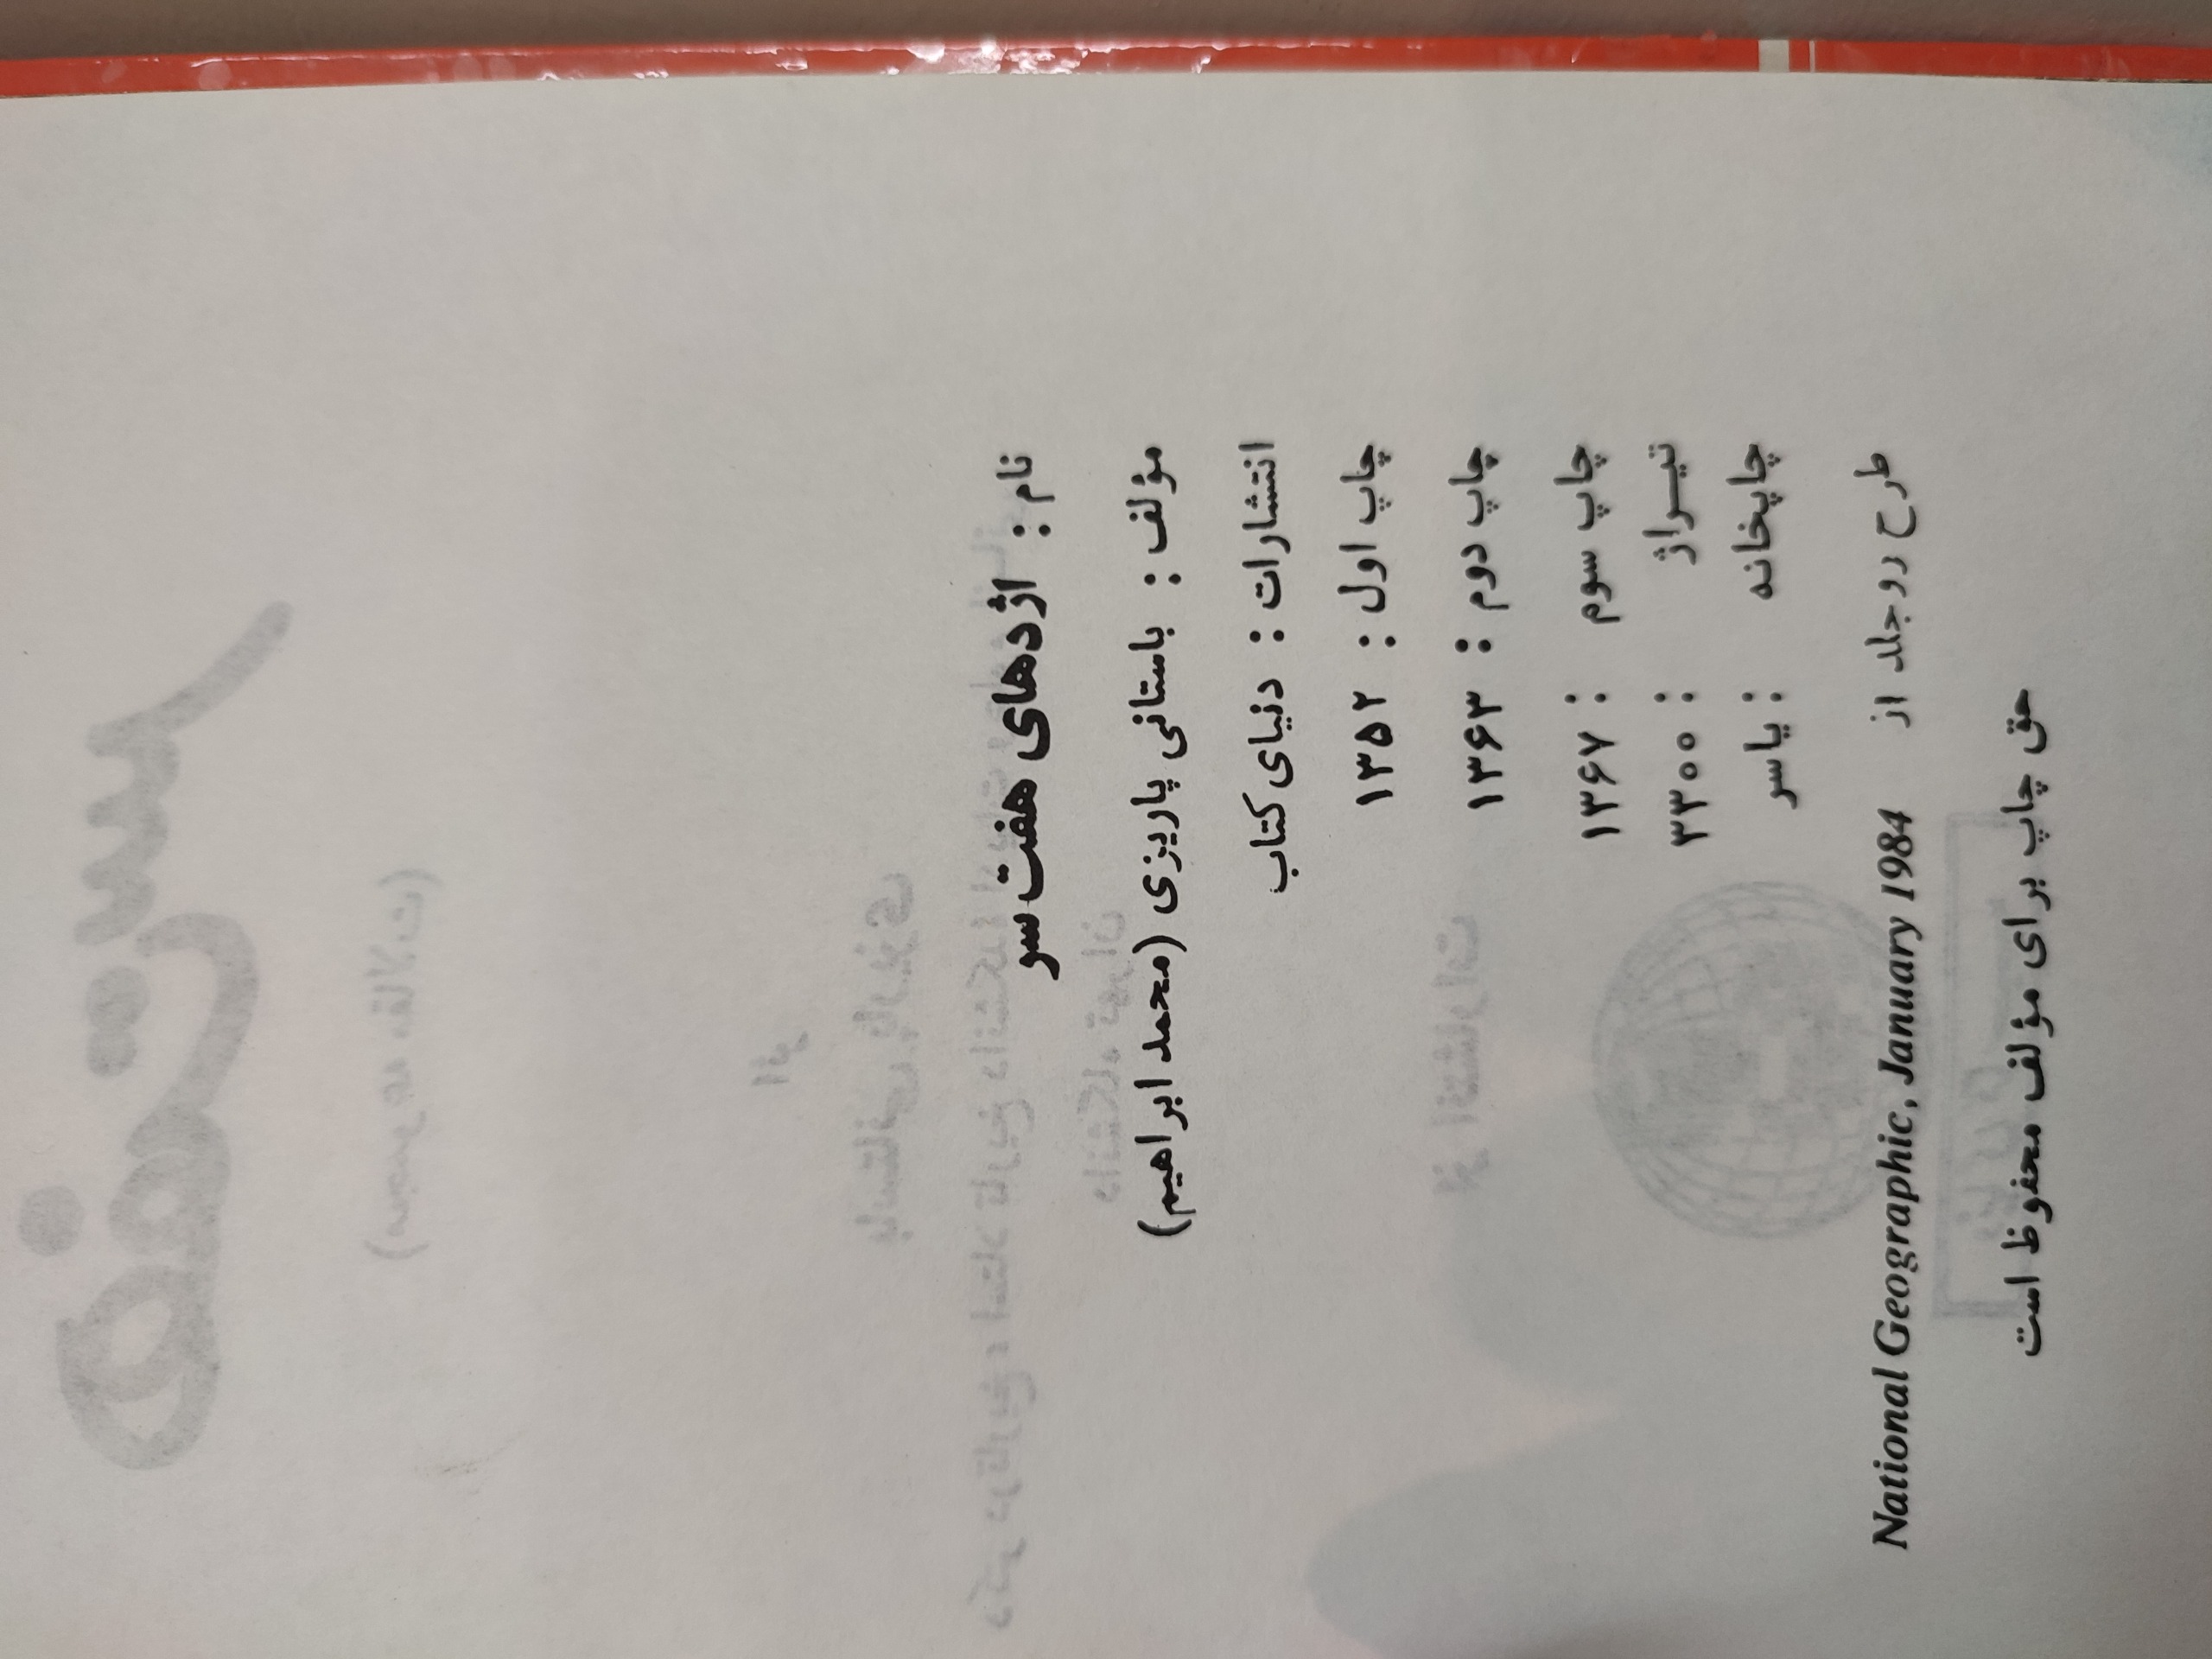 نام : اژدهای هفت سر
مؤلف : باستانی پاریزی (محمد ابراهیم)
انتشارات : دنیای کتاب
چاپ اول : ۱۳۵۲
چاپ دوم : ۱۳۶۳
چاپ سوم : ۱۳۶۷
تیراژ : ۳۳۰۰
چاپخانه : یاسر
طرح روجلد از National Geographic, January 1984
حق چاپ برای مؤلف محفوظ است